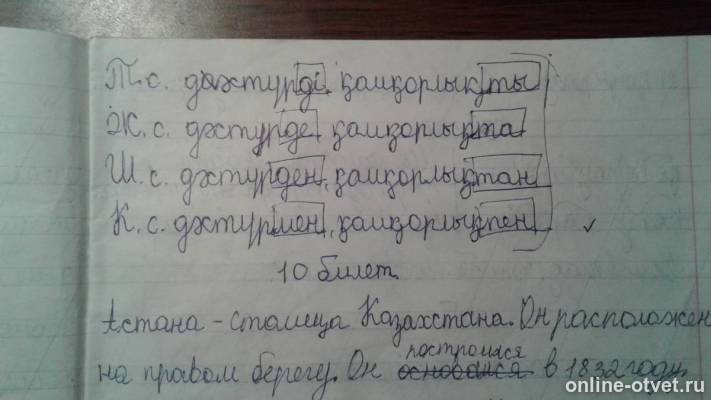 Т.с. дәстүрді, қамқорлықты
Ж.с. дәстүрде, қамқорлықта
Ш.с. дәстүрден, қамқорлықтан
К.с. дәстүрмен, қамқорлықпен
10 билет
Астана - столица Казахстана. Он расположен
построился
на правом берегу. Он основался в 1832 году.
online-otvet.ru